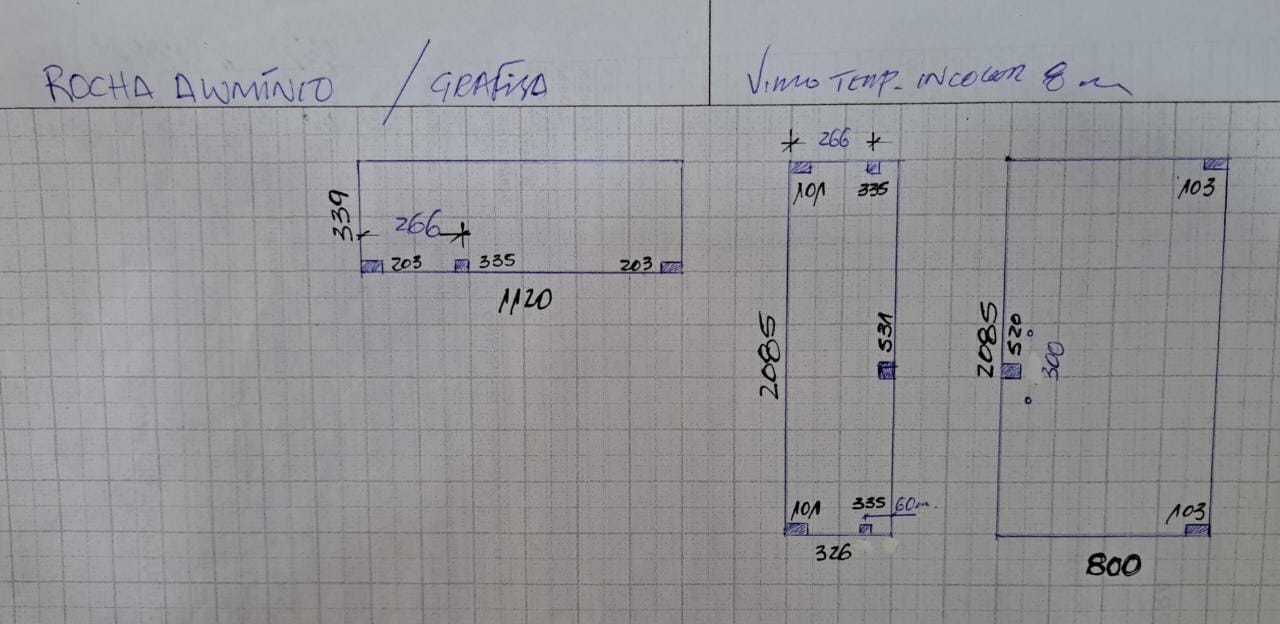 ROCHA ALUMÍNIO / GRAFISA
VIDRO TEMP. INCOLOR 8 m
266
101 335
103
339
266
203 335 203
1120
2085
531
2085
520
300
101 335 60m.
326
103
800